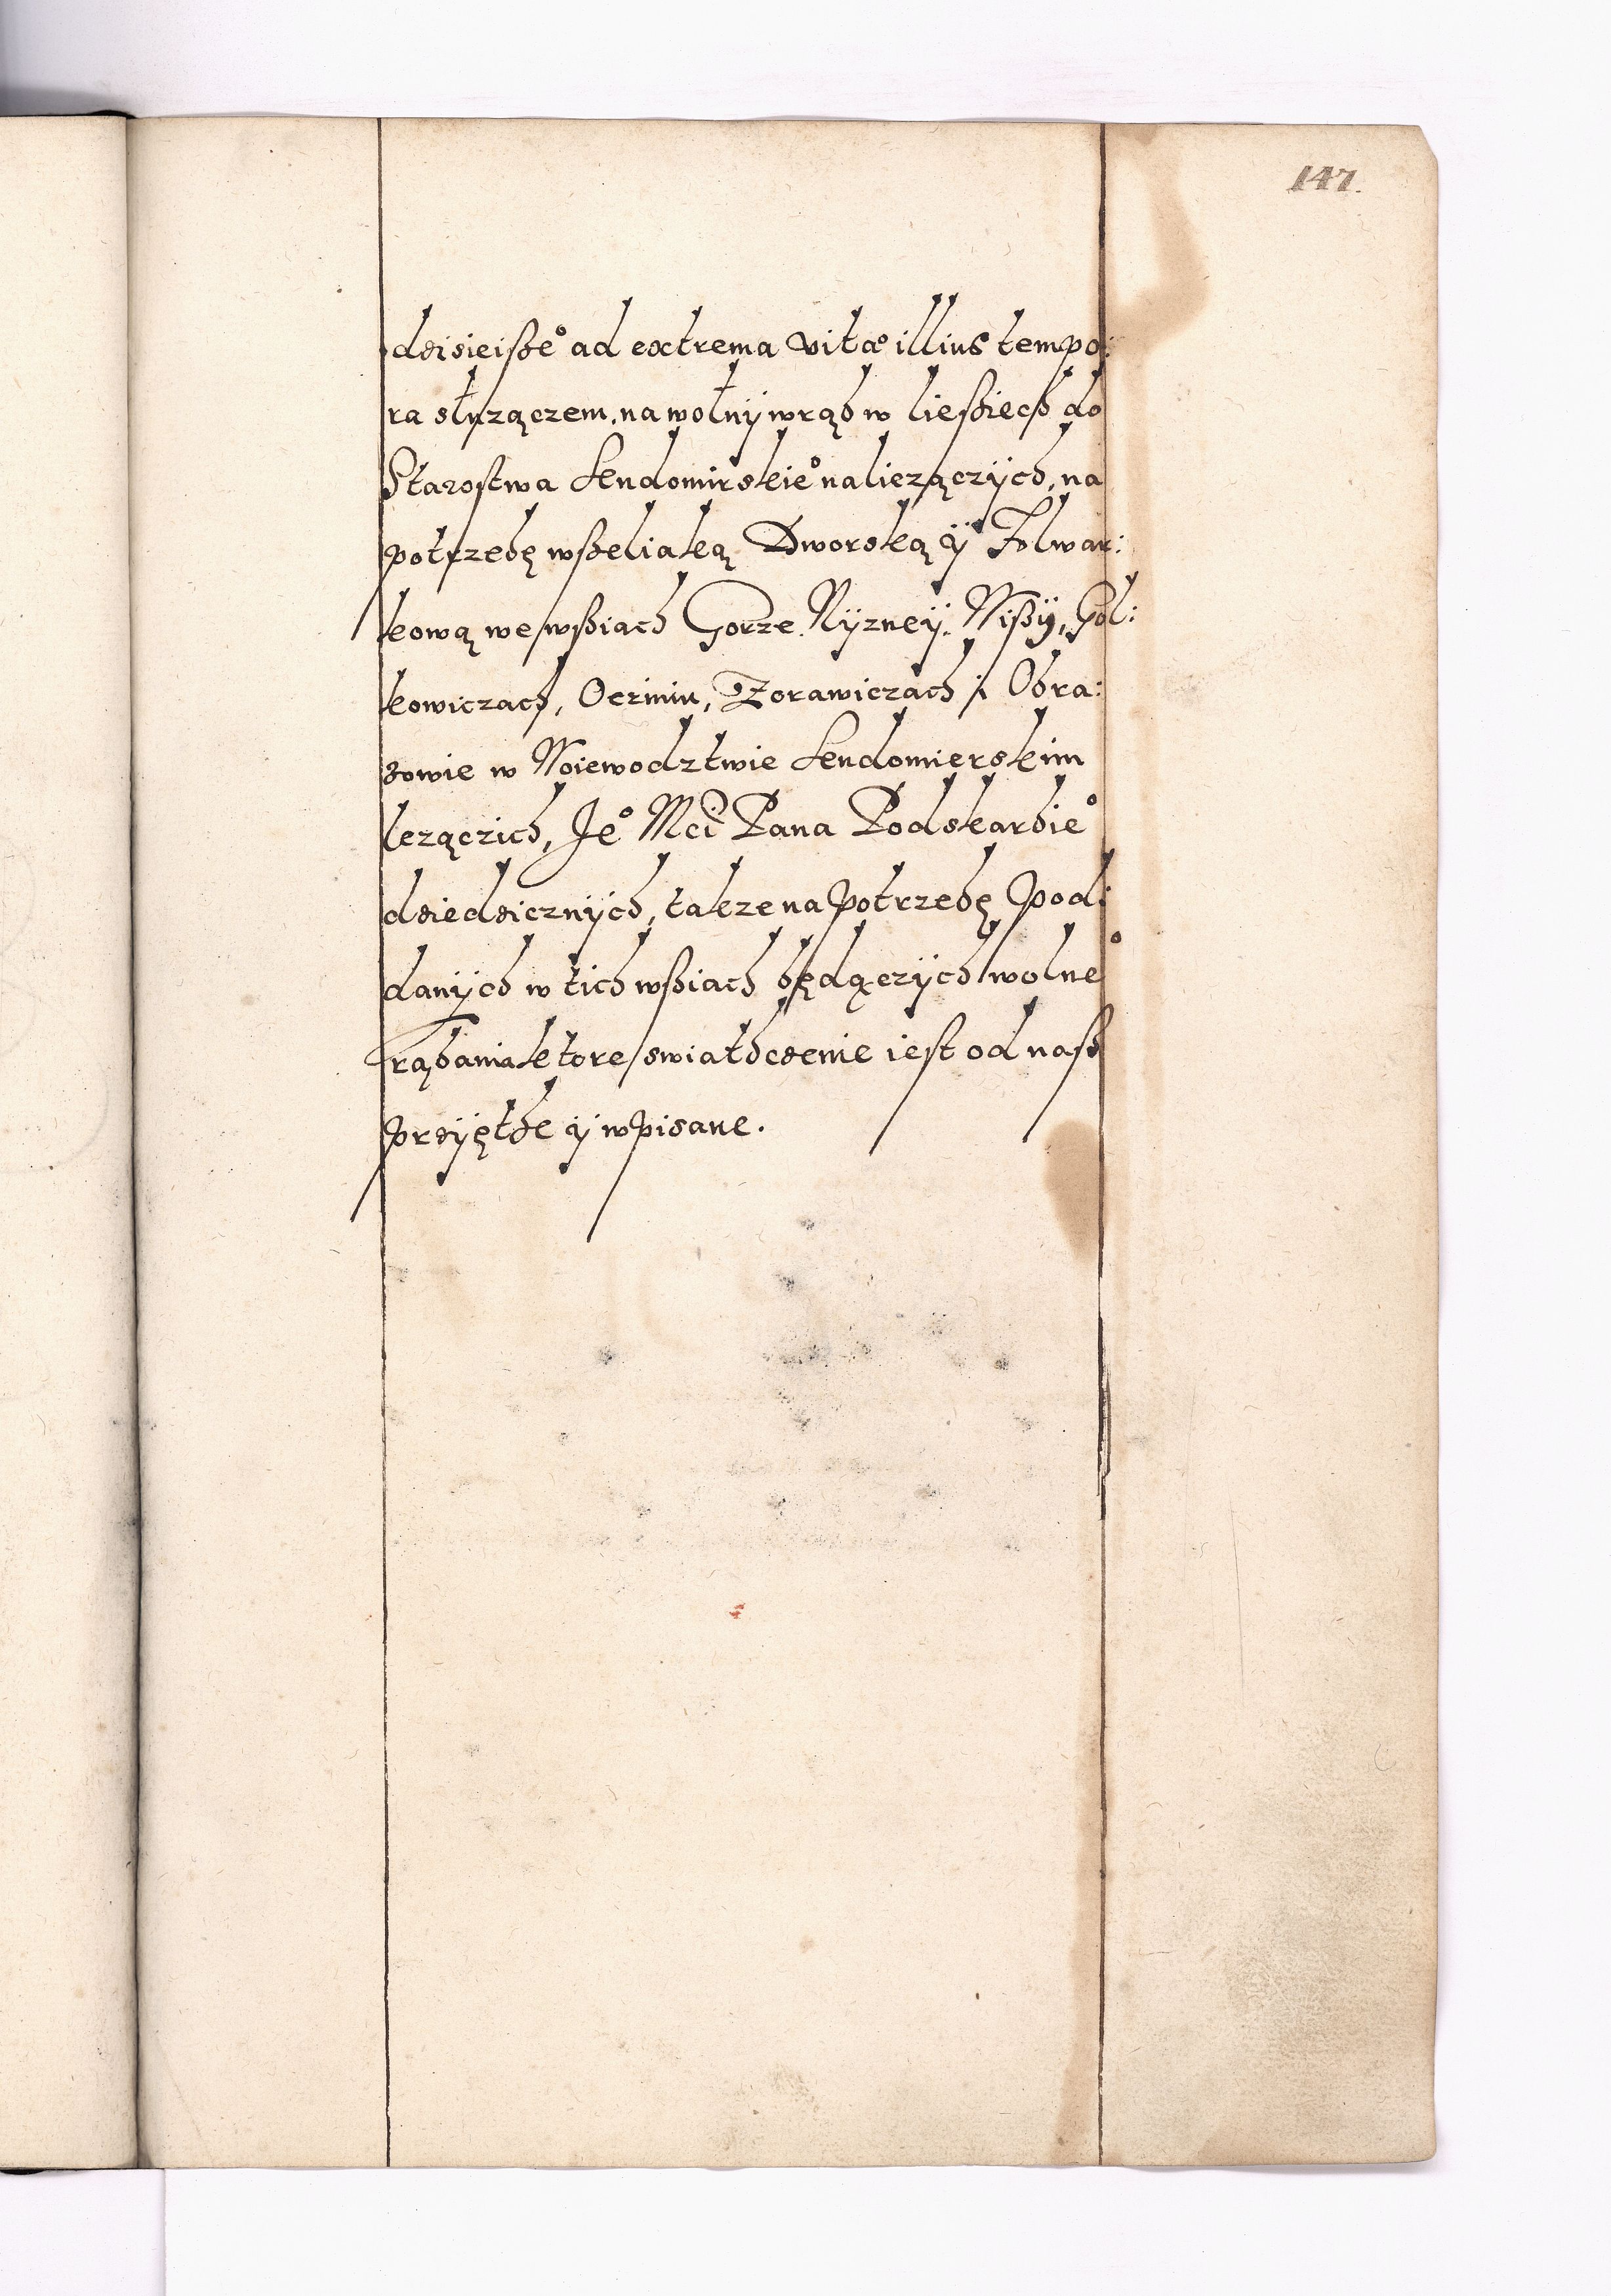 147.
dzisieiße° ad extrema vitæ illius tempo:
ra słuzączem, na wolny wrąb w ließiech do
Starostwa Sendomirskie° naliezączÿch, na
potrzebę wßeliaką Dworską ÿ Folwar:
kową we wßiach Gorze Nÿzneÿ, Wißÿ, Gol:
kowiczach, Ocziniu, Zorawiczach i Obra:
zowie w Woiewodztwie Sendomierskim
lezączich, Je° Mci Pana Podskarbie°
dziedzicznÿch, takze na potrzebę pod:
danÿch w tich wßiach będączÿch wolne°
rąbania ktore swiadczenie iest od naß
przÿęte ÿ wpisane.